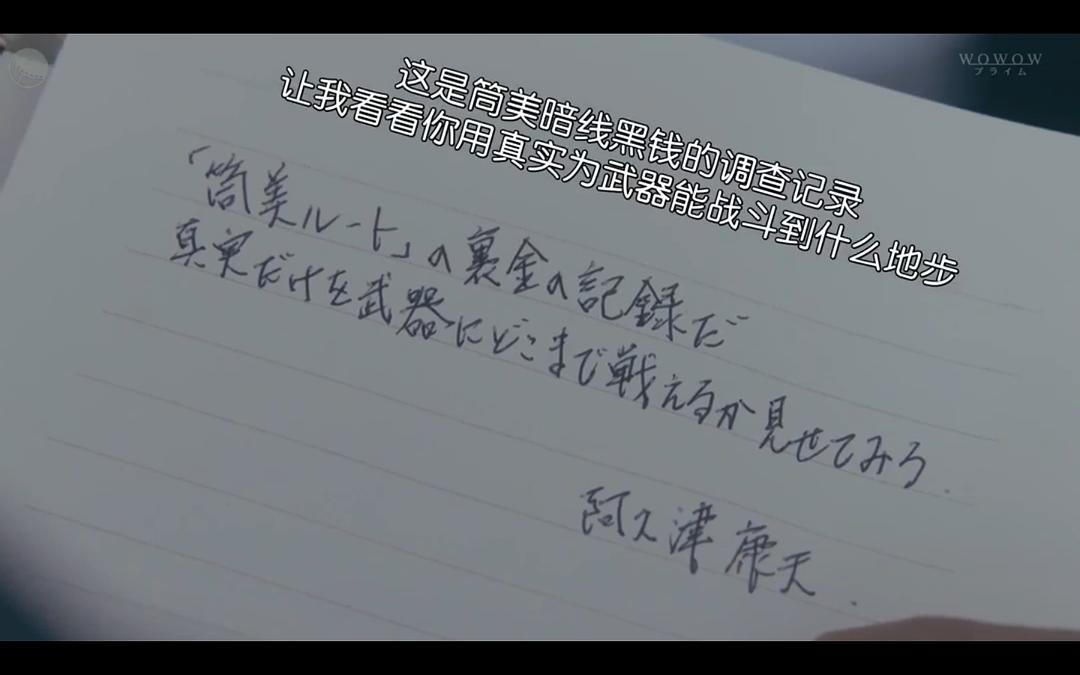 WOWOW
プライム
这是筒美暗线黑钱的调查记录
让我看看你用真实为武器能战斗到什么地步
「筒美ルート」の裏金の記録だ
真実だけを武器にどこまで戦えるか見せてみろ.
阿久津康天.